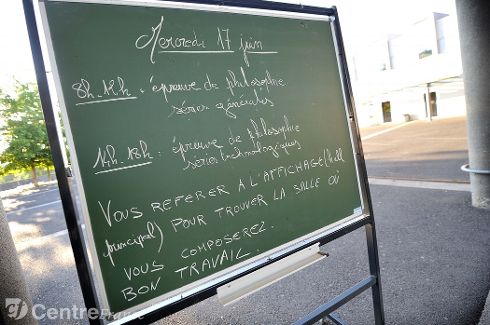 Mercredi 17 juin
8h.12h : épreuve de philosophie
séries générales
14h.18h : épreuve de philosophie
séries technologiques
VOUS REFERER A L'AFFICHAGE (hall
principal) POUR TROUVER LA SALLE OÙ
VOUS COMPOSEREZ.
BON TRAVAIL.
Centre France